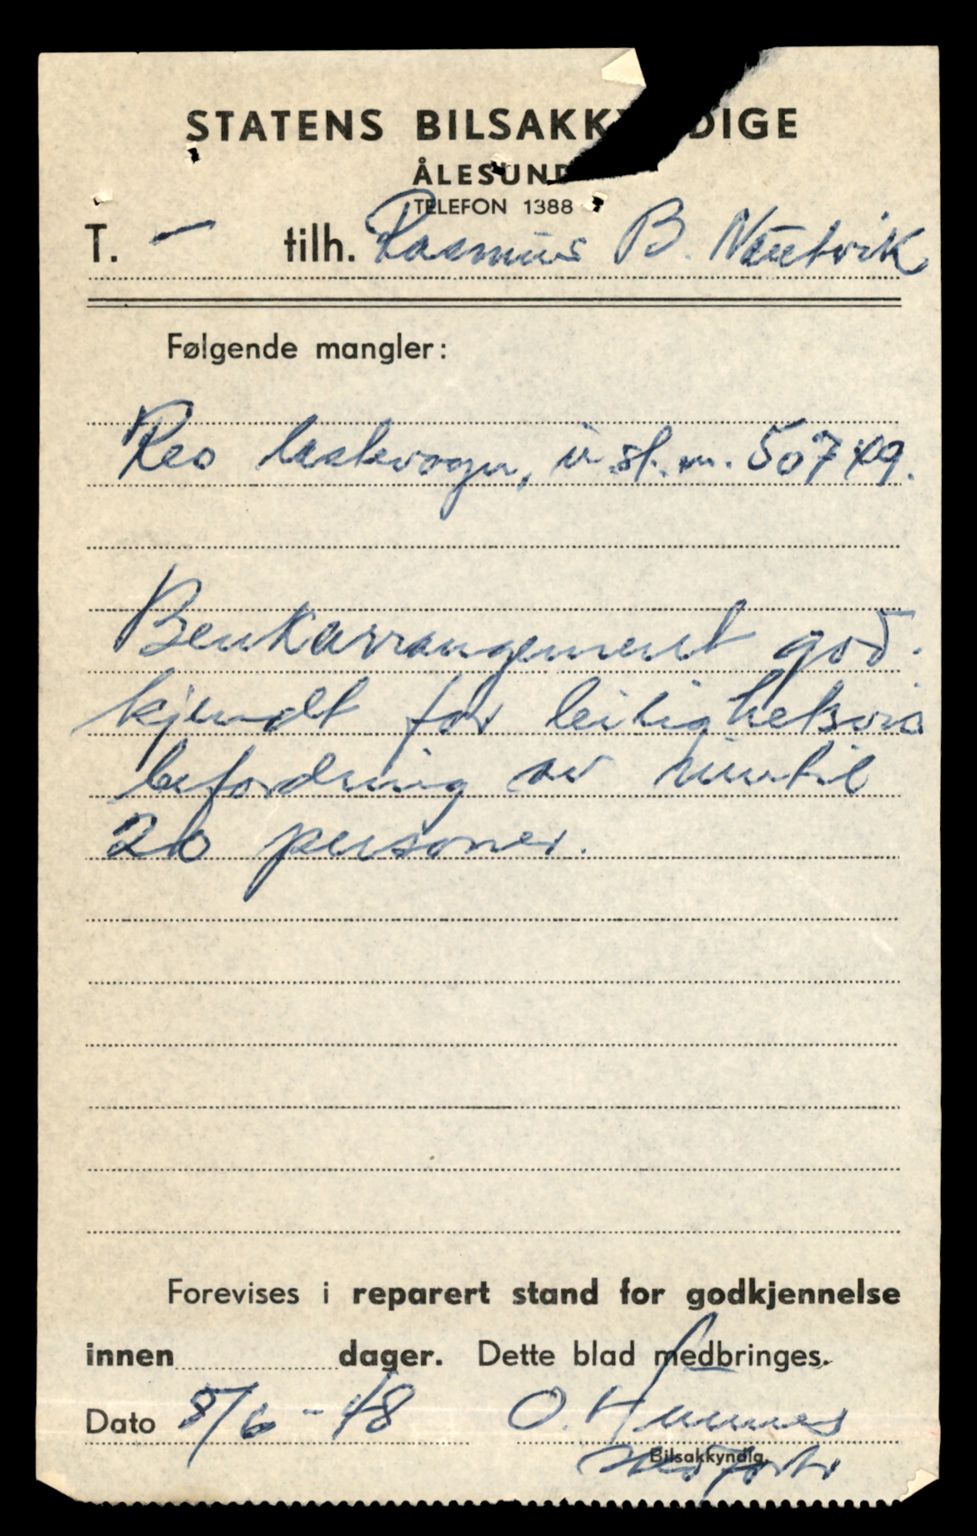 STATENS BILSAKKYNDIGE
ÅLESUND
TELEFON 1388
T. — tilh. Rasmus B. Nautvik
Følgende mangler:
Reo lastevogn, u. st. m. 50749.
Benkarrangement god-
kjendt for leilighetsvis
befordring av inntil
20 personer.
Forevises i reparert stand for godkjennelse
innen dager. Dette blad medbringes.
Dato 8/6-48 O. Hunnes
Bilsakkyndig.